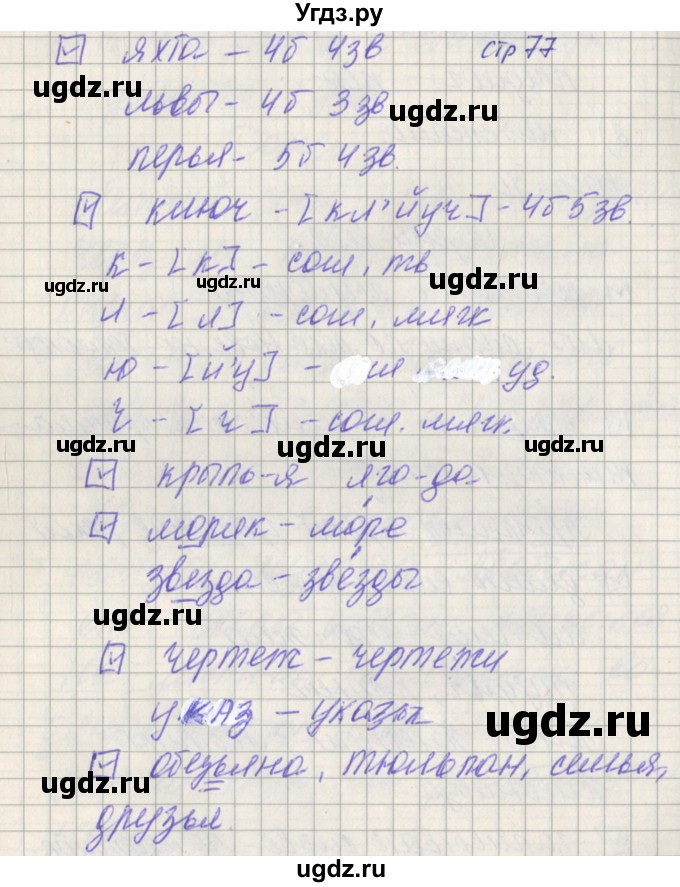 Угдз.ру
яхта – 4б 4зв стр 77
львы – 4б 3зв
ugdz.ru
ugdz.ru
перья – 5б 4зв.
ключ – [кл'йуч] – 4б 5зв.
к – [к] – согл, тв
ugdz.ru
ugdz.ru
л – [л] – согл, мягк
ю – [й'у] – уд.
ugdz.ru
ч – [ч] – согл. мягк.
ugdz.ru
ugdz.ru
крыль-я яго-да.
моряк – мо́ре
ugdz.ru
звезда – звёзды
ugdz.ru
чертеж – чертежи
ugdz.ru
указ – указы
ugdz.ru
обезьяна, тюльпан, семья,
ugdz.ru
друзья.
ugdz.ru
ugdz.ru